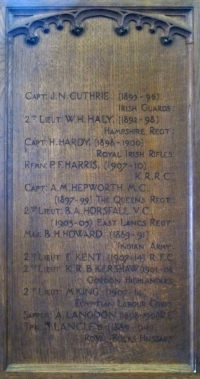 CAPT: J. N. GUTHRIE. (1893-96)
IRISH GUARDS
2ND LIEUT: W. H. HALY. (1892-98)
HAMPSHIRE REGT:
CAPT: H. HARDY. (1898-1900)
ROYAL IRISH RIFLES
RFMN: P. F. HARRIS. (1907-10)
K.R.R.C.
CAPT: A. M. HEPWORTH. M.C.
(1897-99) THE QUEENS REGT:
2ND LIEUT: B. A. HORSFALL. V.C.
(1903-05) EAST LANCS REGT:
MAJ: B. H. HOWARD. (1883-91)
INDIAN ARMY
2ND LIEUT: E. KENT. (1907-14) R.F.C.
2ND LIEUT: K. R. B. KERSHAW.
GORDON HIGHLANDERS
2ND LIEUT: M. KING.
EGYPTIAN LABOUR CORPS
SAPPER: A. LANGDON
LANGLEY
ROYAL BUCKS HUSSARS